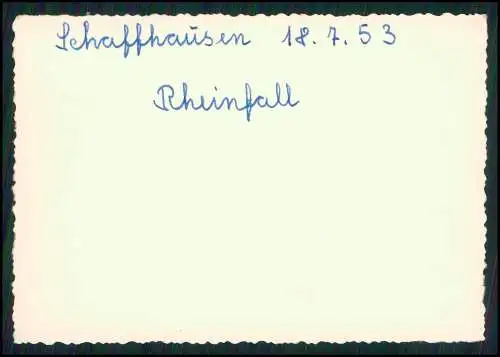 Schaffhausen 18.7.53
Rheinfall